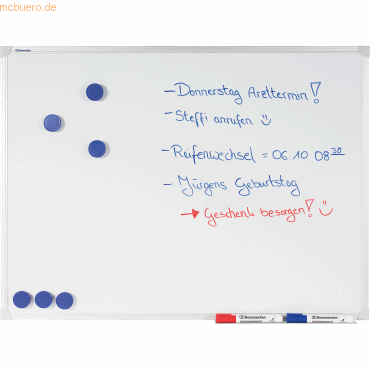 mcbuero.de
- Donnerstag Arzttermin!
- Steffi anrufen ☺
- Reifenwechsel = 06.10 08³⁰
- Jürgens Geburtstag
→ Geschenk besorgen! ☺
Soennecken Soennecken